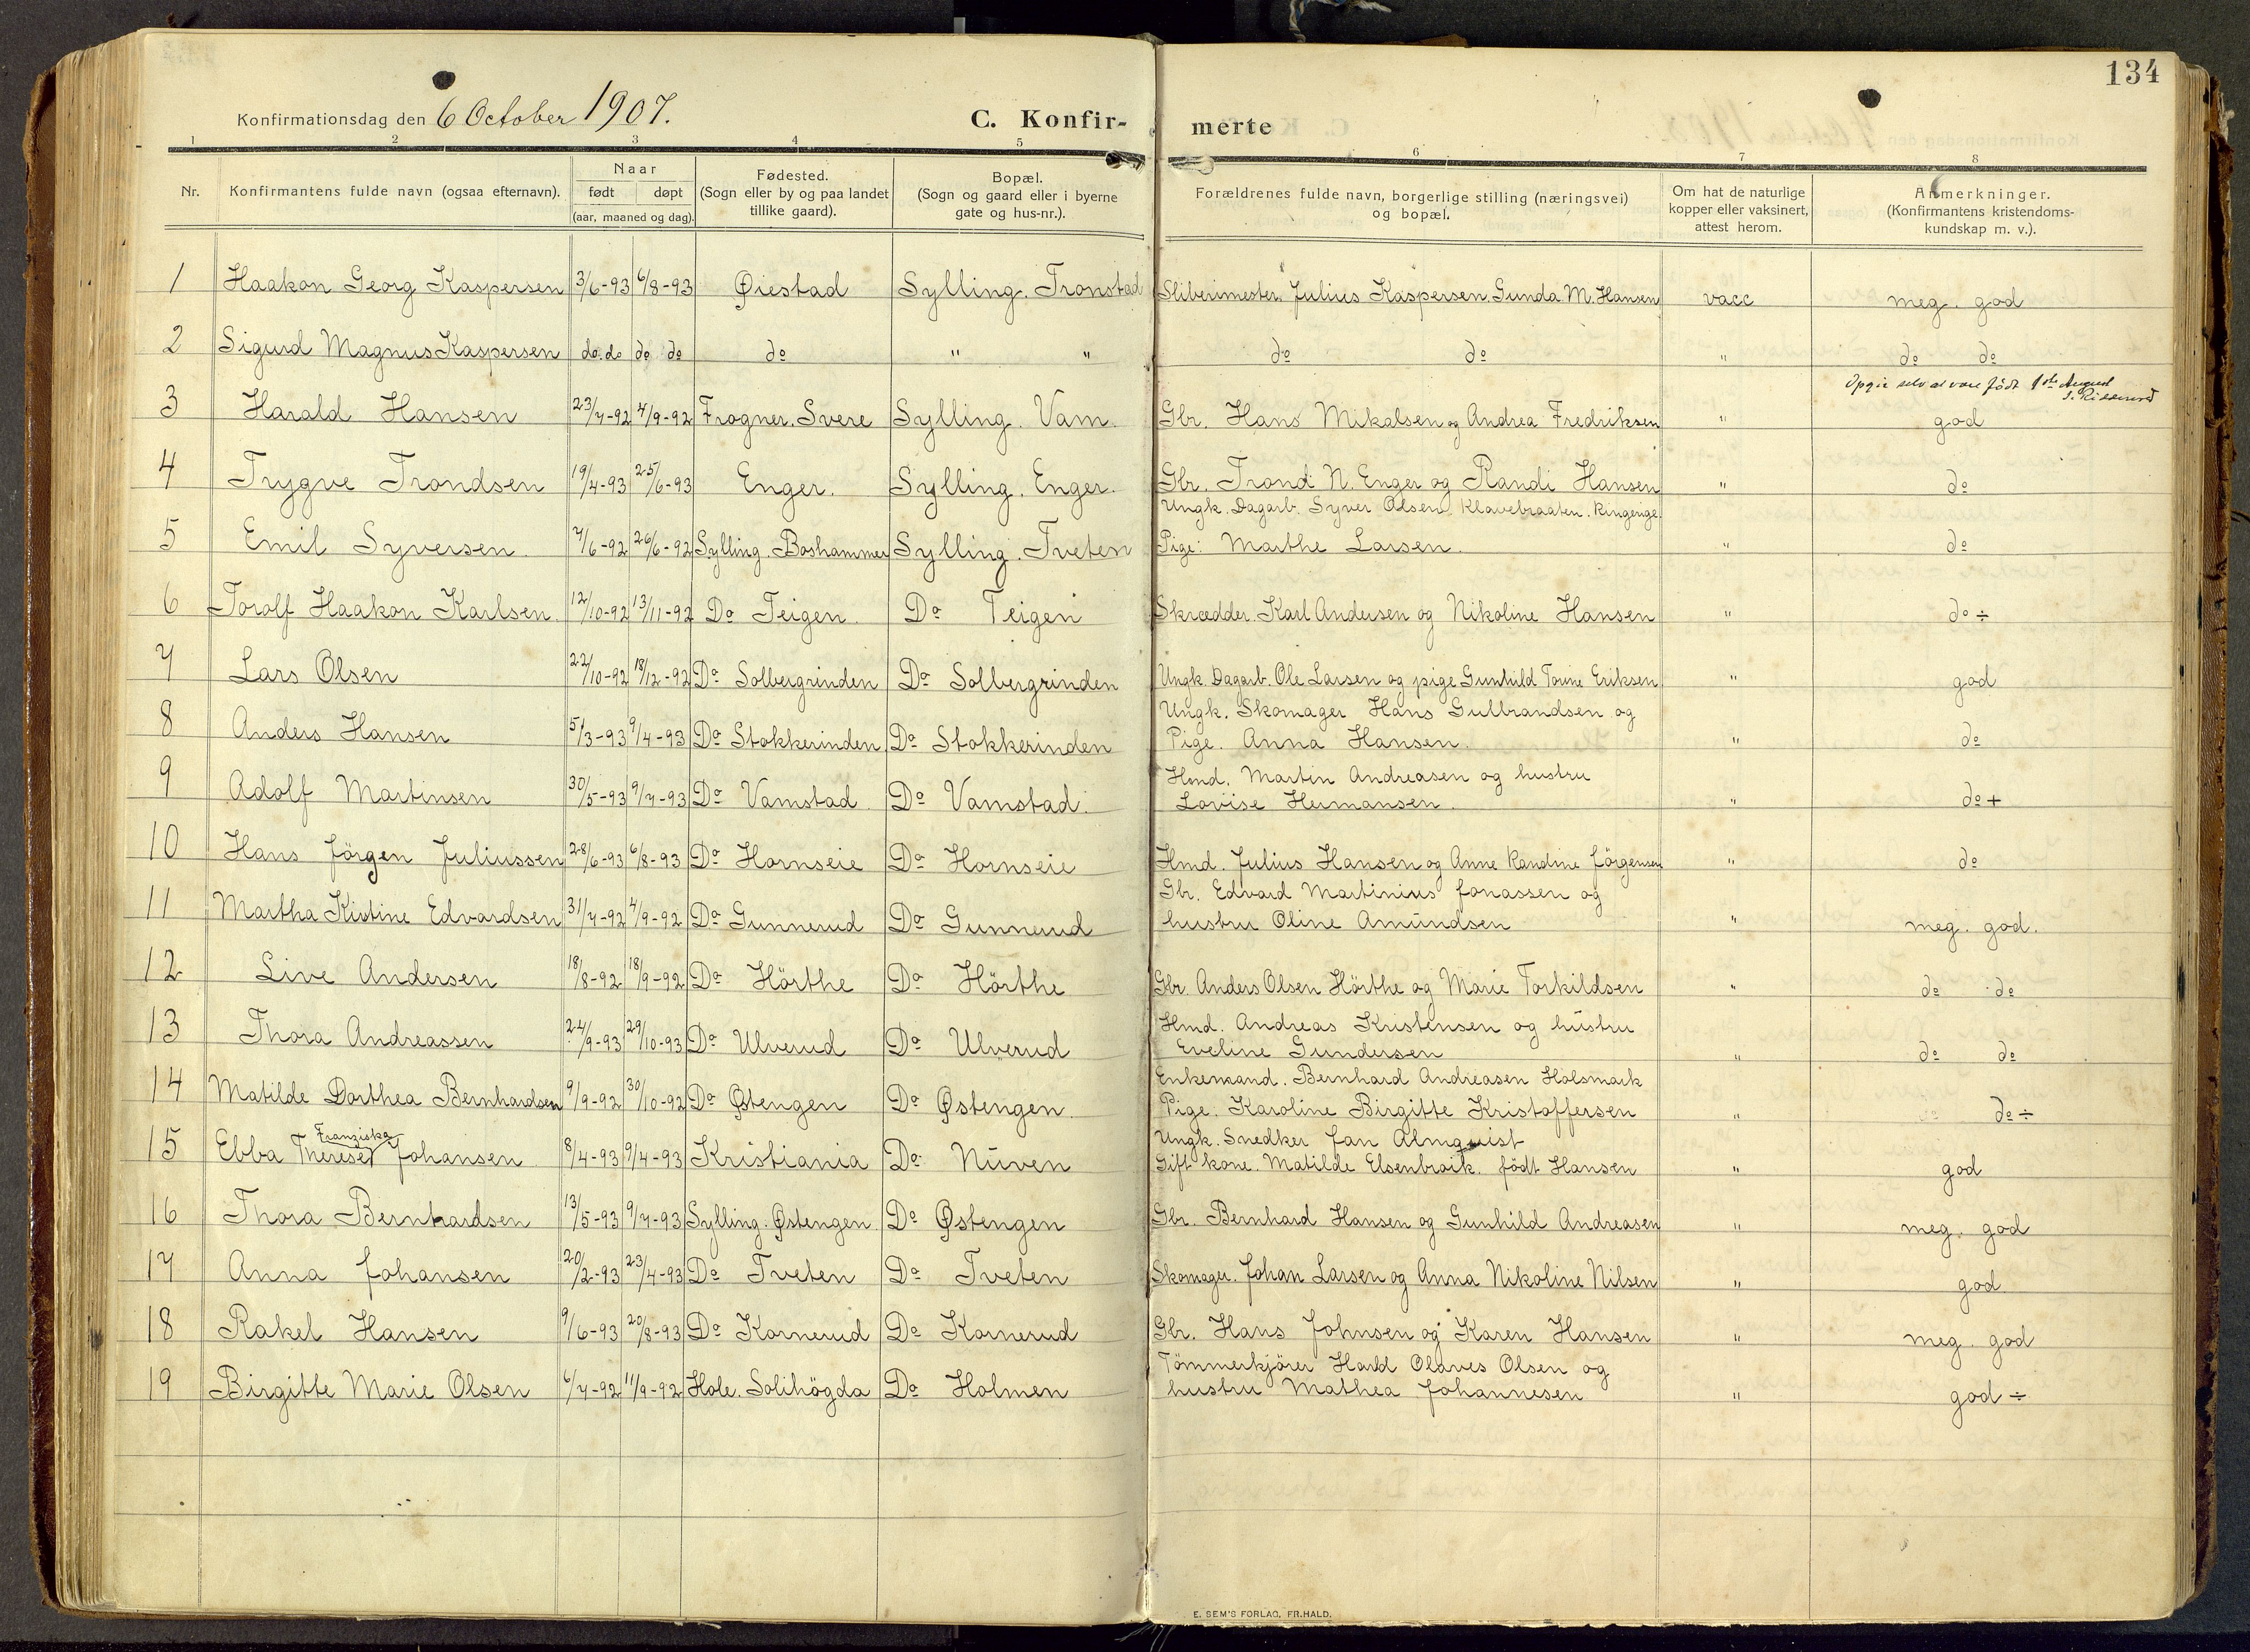 134
Konfirmationsdag den 6 October 1907. C. Konfir- merte
1 2 3 4 5 6 7 8
Nr. Konfirmantens fulde navn (ogsaa efternavn). Naar født døpt (aar, maaned og dag). Fødested. (Sogn eller by og paa landet tillike gaard). Bopæl. (Sogn og gaard eller i byerne gate og hus-nr.). Forældrenes fulde navn, borgerlige stilling (næringsvei) og bopæl. Om hat de naturlige kopper eller vaksinert, attest herom. Anmerkninger. (Konfirmantens kristendoms-kundskap m. v.).
1 Haakon Georg Kaspersen 3/6-93 6/8-93 Øiestad Sylling. Tronstad Sliberimester Julius Kaspersen. Gunda M. Hansen vacc meg. god
2 Sigurd Magnus Kaspersen do. do do do do " " do do " do do
Opgir selv at være født 1ste August
3 Harald Hansen 23/7-92 4/9-92 Frogner. Svere Sylling. Vam. Gbr. Hans Mikalsen og Andrea Fredriksen " god
4 Trygve Trondsen 19/4-93 25/6-93 Enger. Sylling. Enger. Gbr. Trond N. Enger og Randi Hansen " do
Ungk. Dagarb. Syver Olsen. Klavebraaten. Ringerige.
5 Emil Syversen. 7/6-92 26/6-92 Sylling. Boshammer Sylling. Tveten Pige: Marthe Larsen. " do
6 Torolf Haakon Karlsen. 12/10-92 13/11-92 Do Teigen. Do Teigen Skrædder. Karl Andersen og Nikoline Hansen " do ÷
7 Lars Olsen 22/10-92 18/12-92 Do Solbergrinden Do Solbergrinden Ungk. Dagarb. Ole Larsen og pige Gunhild Torine Eriksen " god
Ungk. Skomager Hans Gulbrandsen og
8 Anders Hansen 5/3-93 9/4-93 Do Stokkerinden Do Stokkerinden Pige. Anna Hansen. " do
Hmd. Martin Andreasen og hustru
9 Adolf Martinsen 30/5-93 9/7-93 Do Vamstad. Do Vamstad. Lovise Hermansen. " do +
10 Hans Jörgen Juliussen 28/6-93 6/8-93 Do Hornseie Do Hornseie Hmd. Julius Hansen og Anne Randine Jörgensen " do
Gbr. Edvard Martinius Jonassen og
11 Martha Kistine Edvardsen 31/7-92 4/9-92 Do Gunnerud Do Gunnerud hustru Oline Amundsen " meg. god.
12 Live Andersen 18/8-92 18/9-92 Do Hörthe Do Hörthe Gbr. Anders Olsen Hörthe og Marie Torkildsen " do do
Hmd. Andreas Kristensen og hustru
13 Thora Andreassen 24/9-93 29/10-93 Do Ulverud Do Ulverud Eveline Gundersen " do do
Enkemand. Bernhard Andreasen Holsmark
14 Matilde Dorthea Bernhardsen 9/9-92 30/10-92 Do Østengen Do Østengen. Pige. Karoline Birgitte Kristoffersen " do ÷
Franziska Ungk. Snedker Jan Almquist
15 Ebba Therese Johansen 8/4-93 9/4-93 Kristiania Do Nuven Gift kone. Matilde Elsenbroik. födt Hansen " god
16 Thora Bernhardsen 13/5-93 9/7-93 Sylling. Østengen. Do Østengen Gbr. Bernhard Hansen og Gunhild Andreasen " meg. god
17 Anna Johansen 20/2-93 23/4-93 Do Tveten Do Tveten Skomager. Johan Larsen og Anna Nikoline Nilsen " god
18 Rakel Hansen 9/6-93 20/8-93 Do Kornerud Do Kornerud Gbr. Hans Johnsen og Karen Hansen " meg. god
Tömmerkjörer Harald Olaves Olsen og
19 Birgitte Marie Olsen 6/7-92 11/9-92 Hole. Solihögda Do Holmen hustru Mathea Johannesen " god ÷
E. SEM'S FORLAG, FR.HALD.